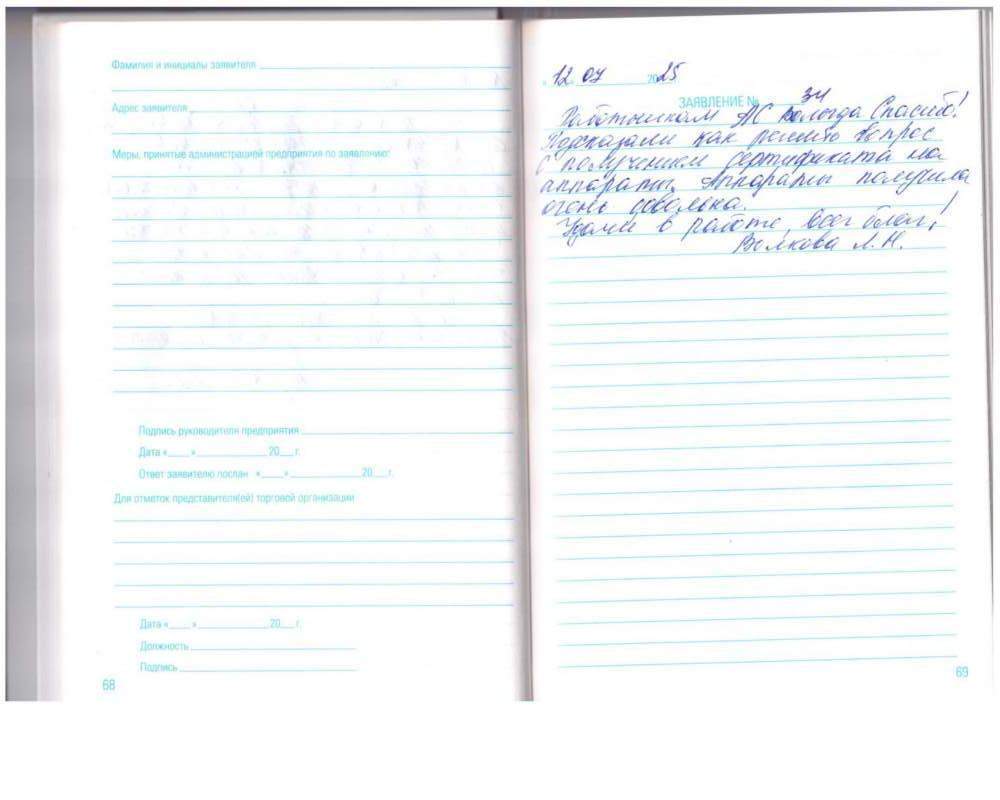 Фамилия и инициалы заявителя
Адрес заявителя
Меры, принятые администрацией предприятия по заявлению:
Подпись руководителя предприятия
Дата «___» ___ 20__ г.
Ответ заявителю послан «___» ___ 20__ г.
Для отметок представителя(ей) торговой организации
Дата «___» ___ 20__ г.
Должность
Подпись
68
12 07 2025
ЗАЯВЛЕНИЕ № 34
Работникам АС Вологда Спасибо!
Подсказали как решить вопрос
с получением сертификата на
аппараты. Аппараты получила
очень довольна.
Удачи в работе, всех благ!
Волкова Л.Н.
69